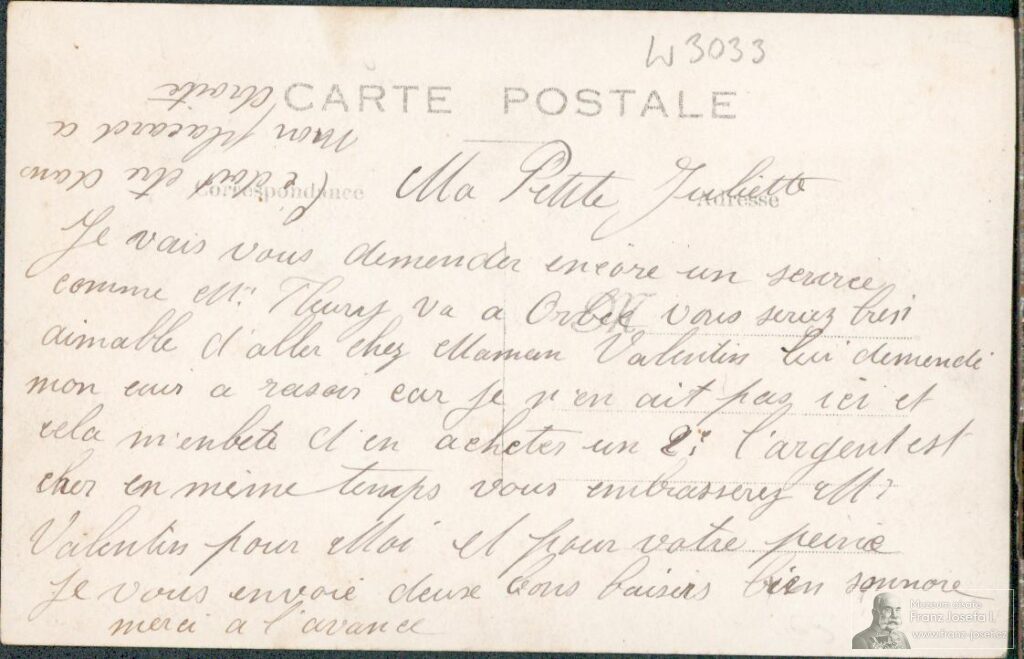 W3033
CARTE POSTALE
Correspondance
Adresse
Ma Petite Juliette
Je vais vous demender encore un service
comme Mr. Fleury va a Orbec vous seriez très
aimable d'aller chez Maman Valentin lui demendé
mon cuir a rasoir car je n'en ait pas ici et
cela m'enbete d'en acheter un 2e l'argent est
cher en même temps vous embrasserez Mr
Valentin pour Moi et pour votre peine
Je vous envoie deux bons baisers bien sonnore
merci a l'avance
(ce doit etre dans
mon placard a
droite
Muzeum císaře
Franz Josefa I.
www.franz-josef.cz